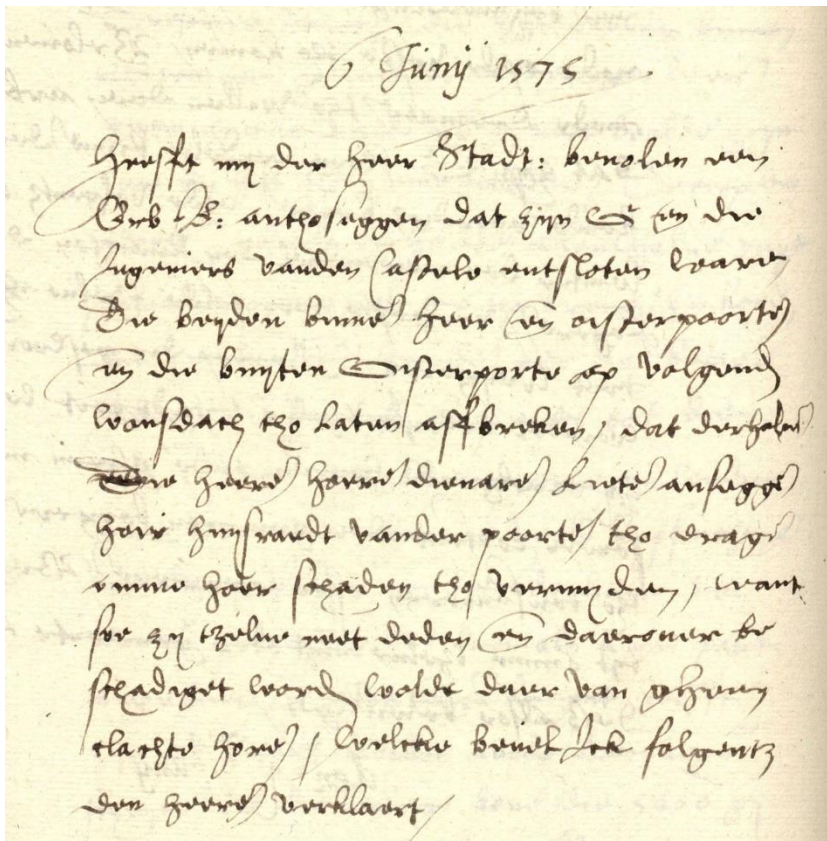 6 Junij 1575
Heefft my der Heer Stadt: bevolen een
Erb R: anthoseggen dat zijn G en die
Ingeniers vanden Castele entsloten waren
Die beyden binne Heer en oisterpoorte
en die buyten Oisterporte op volgend
wonsdach tho laten affbreken, dat derhalve
Die heere heere dienare liete ansegge
hoir huysraedt vander poorte tho drage
omme hoer schaden tho vermyden, want
soe zy tzelve neet deden en daerover be
schadiget word wolde daer van gheen
clachte hore, welcke bevel Ick folgentz
den heere verklaert,